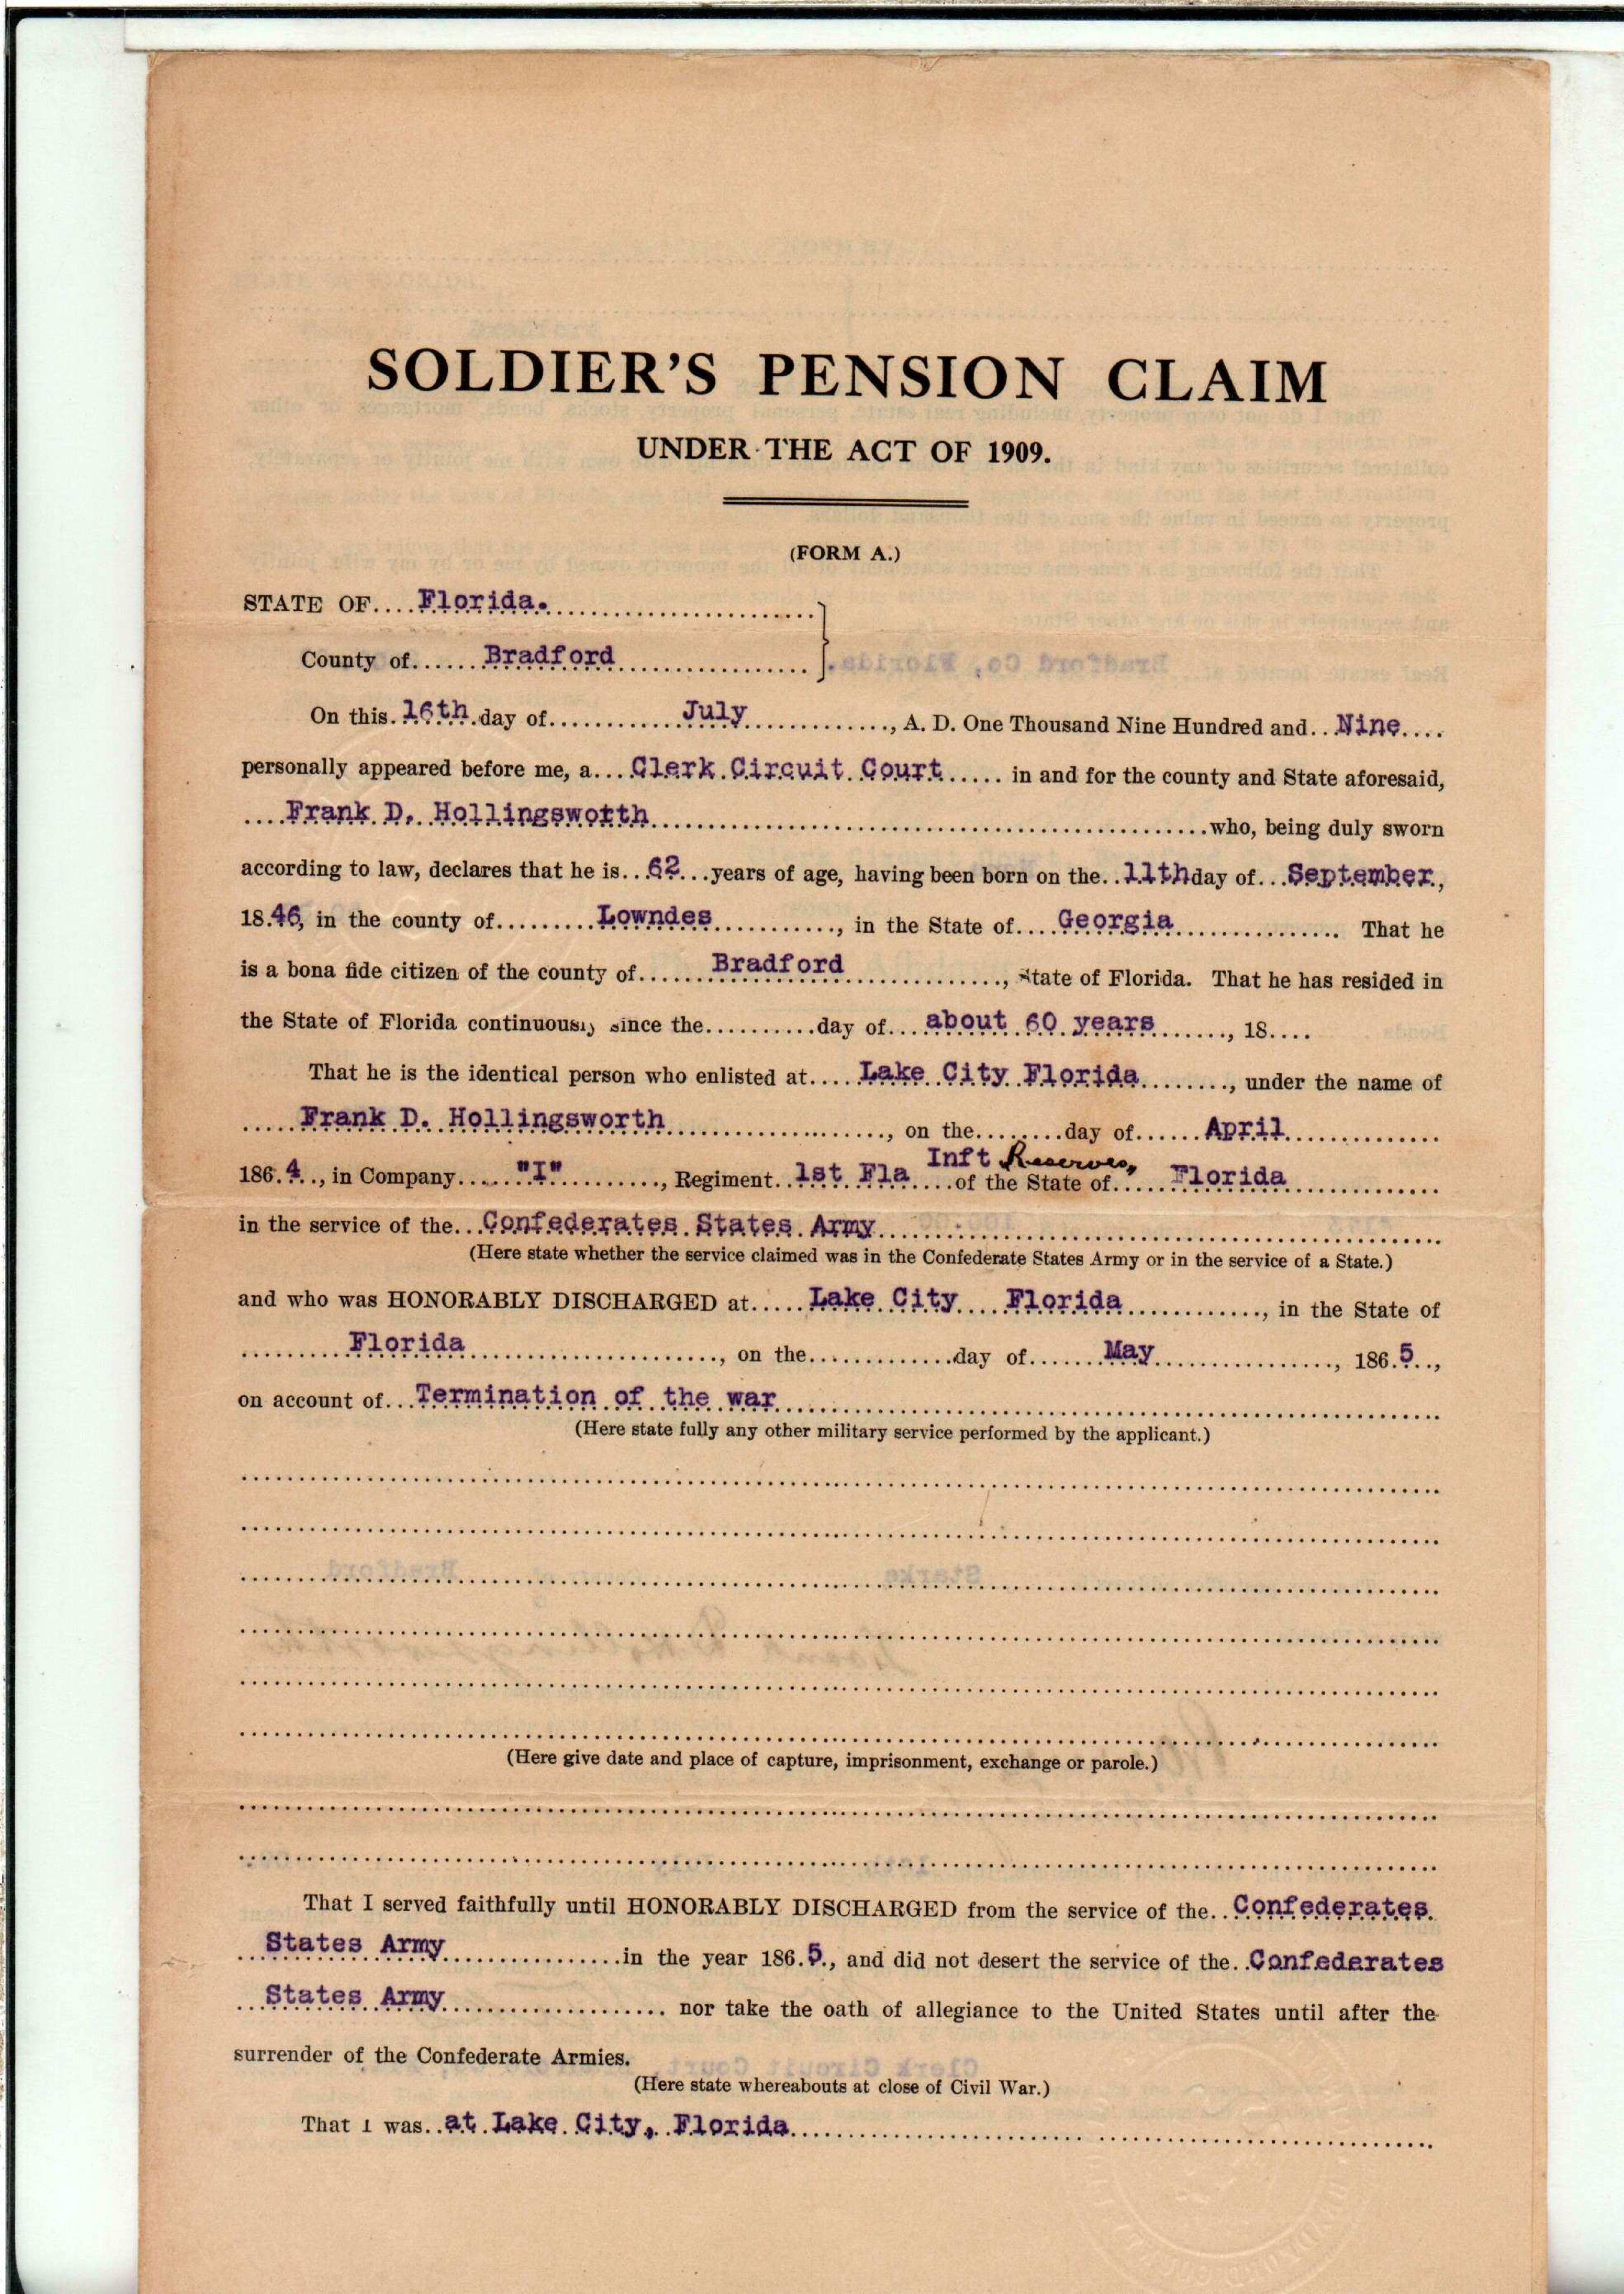 SOLDIER'S PENSION CLAIM
UNDER THE ACT OF 1909.
(FORM A.)
STATE OF....Florida.
County of......Bradford
On this 16th day of............July............, A. D. One Thousand Nine Hundred and..Nine....
personally appeared before me, a...Clerk Circuit Court...... in and for the county and State aforesaid,
....Frank D. Hollingsworth............who, being duly sworn
according to law, declares that he is...62...years of age, having been born on the..11th day of...September,
18.46, in the county of.........Lowndes............, in the State of....Georgia............... That he
is a bona fide citizen of the county of......Bradford............, State of Florida. That he has resided in
the State of Florida continuously since the..........day of...about 60 years......., 18....
That he is the identical person who enlisted at....Lake City Florida........, under the name of
.....Frank D. Hollingsworth............, on the........day of......April..............
Inft Reserves,
186.4.., in Company......."I".........., Regiment..1st Fla....of the State of.....Florida..............
in the service of the...Confederates States Army
(Here state whether the service claimed was in the Confederate States Army or in the service of a State.)
and who was HONORABLY DISCHARGED at.....Lake City Florida............, in the State of
..........Florida............, on the............day of.......May................, 186.5..,
on account of...Termination of the war
(Here state fully any other military service performed by the applicant.)
(Here give date and place of capture, imprisonment, exchange or parole.)
That I served faithfully until HONORABLY DISCHARGED from the service of the..Confederates
...States Army............in the year 186.5., and did not desert the service of the..Confedarates
...States Army............ nor take the oath of allegiance to the United States until after the
surrender of the Confederate Armies.
(Here state whereabouts at close of Civil War.)
That I was..at Lake City, Florida